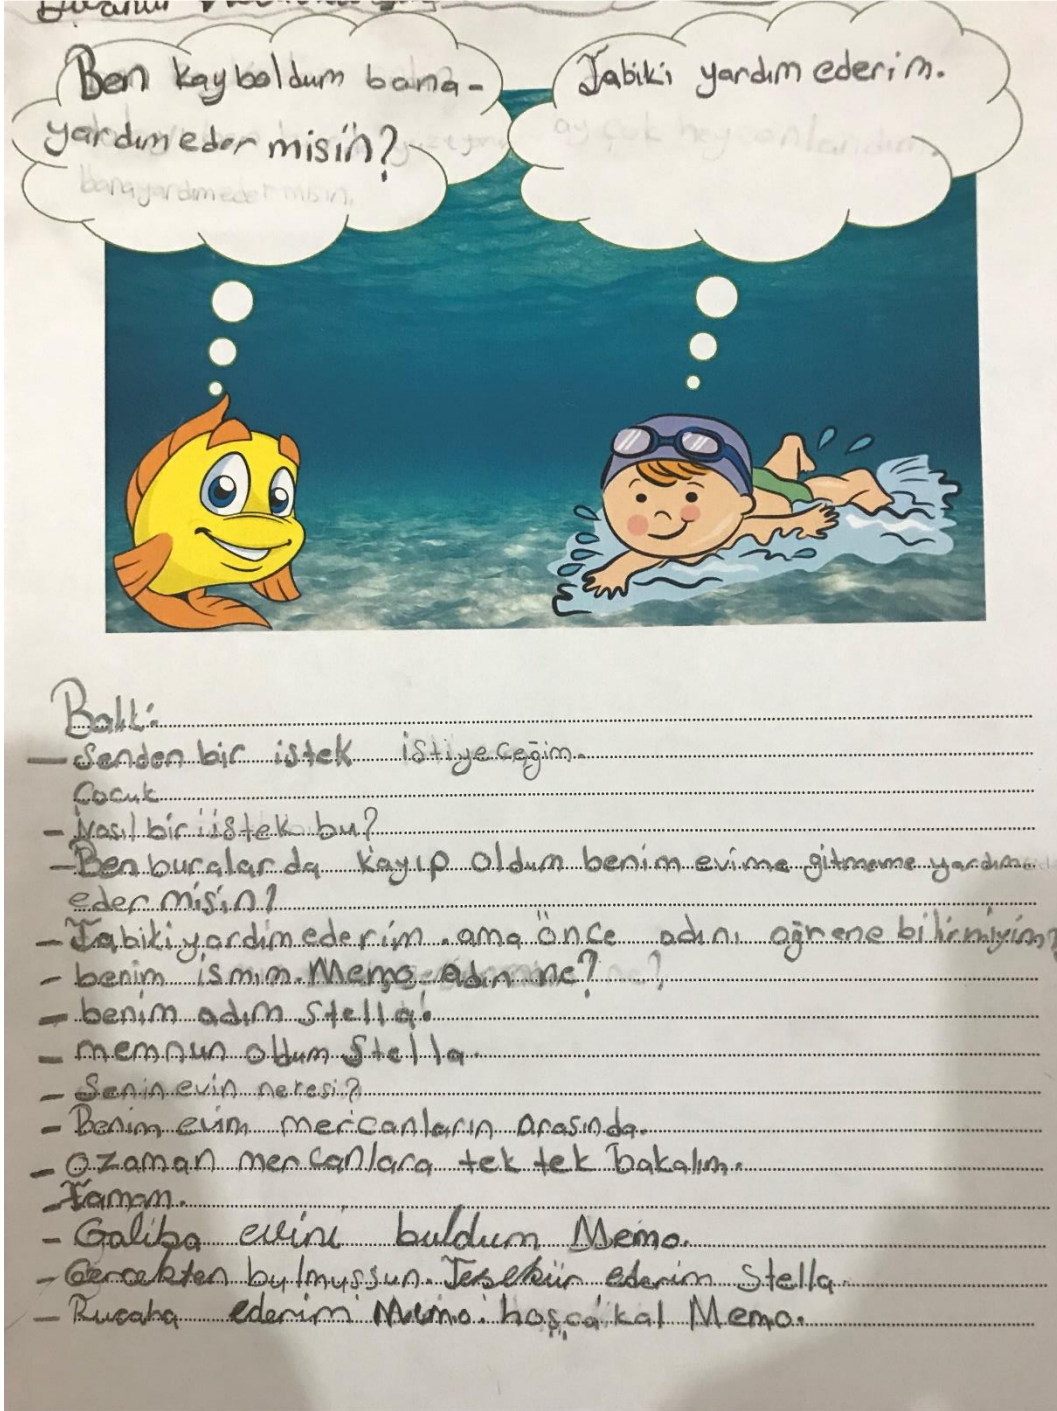 Ben kayboldum bana-
yardım eder misin?
bana yardım eder misin.
Tabiki yardım ederim.
ay çok heycanlandım.
Balık:
- Senden bir istek istiyeceğim.
Çocuk
- Nasıl bir istek bu?
- Ben buralarda kayıp oldum benim evime gitmeme yardım
eder misin?
- Tabiki yardım ederim. ama önce adını öğrene bilirmiyim?
- benim ismim Memo. adın ne?
- benim adım Stella.
- memnun oldum Stella.
- Senin evin neresi?
- Benim evim mercanların arasında.
- Ozaman mercanlara tek tek bakalım.
- Tamam.
- Galiba evini buldum Memo.
- Gercekten bulmuşsun. Teşekür ederim Stella.
- Rucaha ederim Memo. hoşça kal Memo.